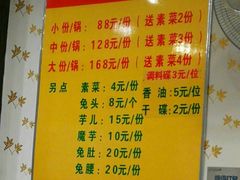 小份/锅：88元/份（送素菜2份）
中份/锅：128元/份（送素菜3份）
大份/锅：168元/份（送素菜4份）
调料碟3元/位
另点 素菜：4元/份 香油：5元/位
兔头：8元/个 干碟：2元/份
芋儿：15元/份
魔芋：10元/份
兔肚：20元/份
兔腰：20元/份